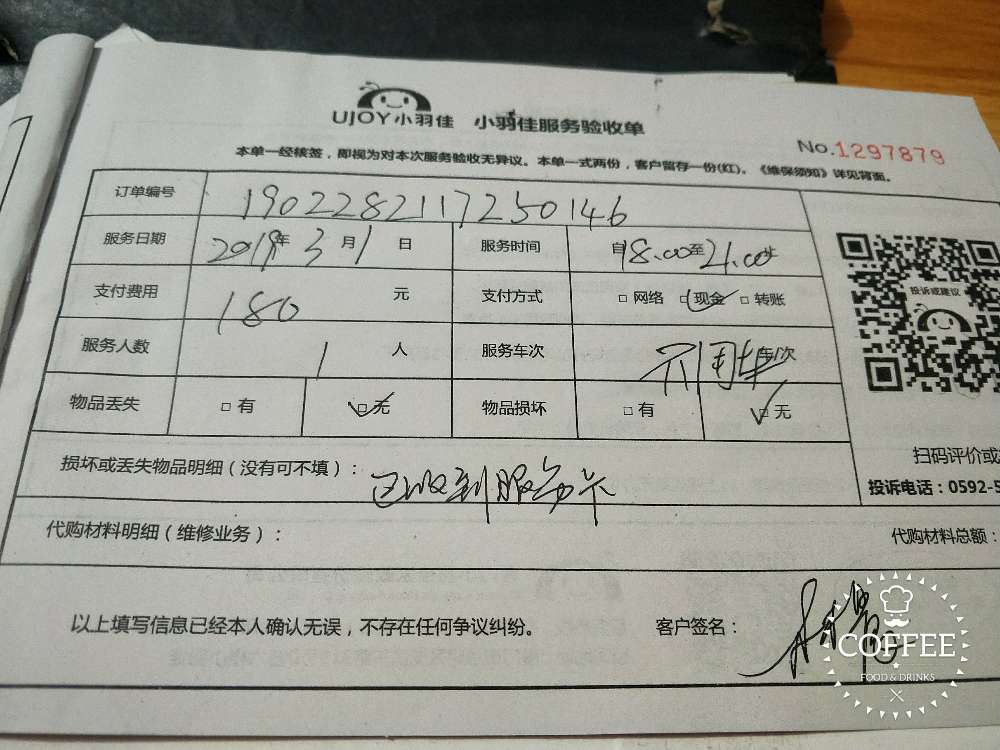 UJOY小羽佳 小羽佳服务验收单
No.1297879
本单一经核签，即视为对本次服务验收无异议。本单一式两份，客户留存一份(红)。《维保须知》详见背面。
订单编号 1902282117250146
服务日期 2019年3月1日 服务时间 自18:00至21:00止
支付费用 180 元 支付方式 □网络 □现金 □转账
投诉或建议
服务人数 1 人 服务车次 不用车 车/次
物品丢失 □有 □无 物品损坏 □有 □无
扫码评价或
损坏或丢失物品明细（没有可不填）： 已收到服务卡
投诉电话：0592-5
代购材料明细（维修业务）： 代购材料总额：
以上填写信息已经本人确认无误，不存在任何争议纠纷。 客户签名：
COFFEE
FOOD & DRINKS